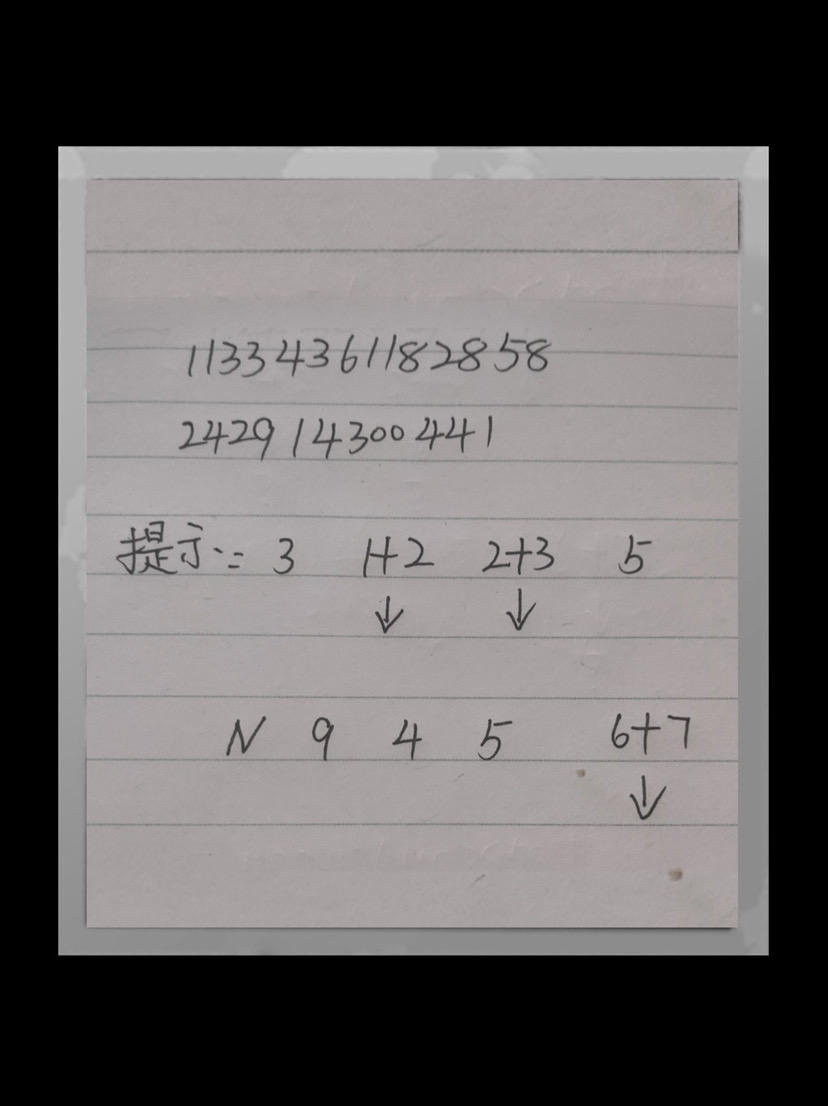 11334361182858
2429143004 41
提示：3 1+2 2+3 5
↓ ↓
N 9 4 5 6+7
↓